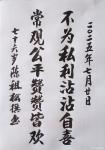 二〇二五年七月廿日
不为私利沾沾自喜
常观公平赞赞皆欢
七十六岁陈祖松撰书